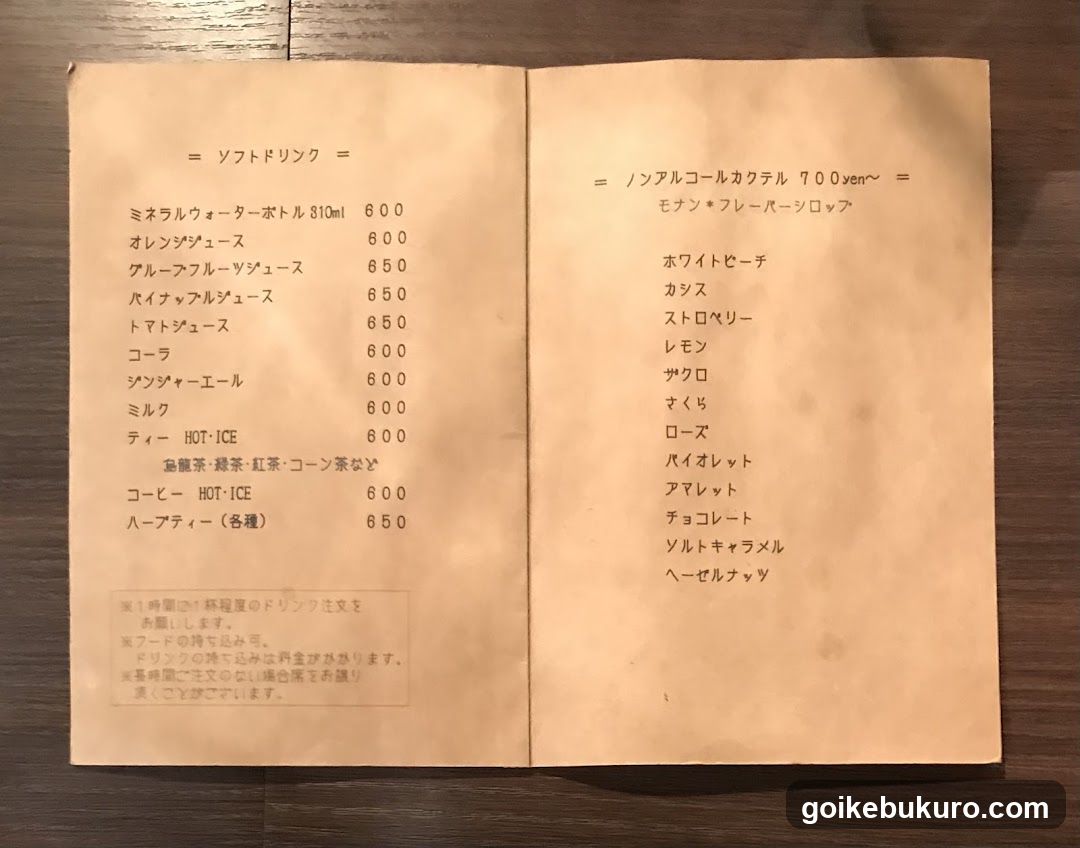 ＝ ソフトドリンク ＝
ミネラルウォーターボトル310ml 600
オレンジジュース 600
グループフルーツジュース 650
パイナップルジュース 650
トマトジュース 650
コーラ 600
ジンジャーエール 600
ミルク 600
ティー HOT・ICE 600
烏龍茶・緑茶・紅茶・コーン茶など
コーヒー HOT・ICE 600
ハーブティー（各種） 650
※１時間に１杯程度のドリンク注文を
お願いします。
※フードの持ち込み可。
ドリンクの持ち込みは料金がかかります。
※長時間ご注文のない場合席をお譲り
頂くことがございます。
＝ ノンアルコールカクテル 700yen～ ＝
モナン＊フレーバーシロップ
ホワイトピーチ
カシス
ストロベリー
レモン
ザクロ
さくら
ローズ
バイオレット
アマレット
チョコレート
ソルトキャラメル
ヘーゼルナッツ
goikebukuro.com